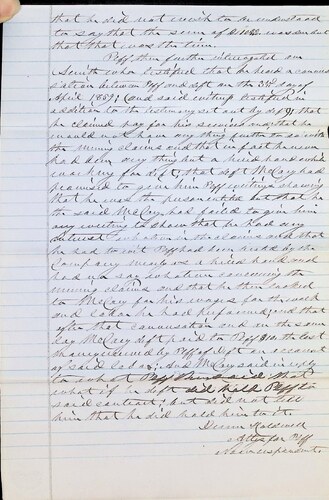 that he did not wish to be understood
to say that the sum of was due but
that that was the time.
Plff then further interrogated one
Smith who testified that he heard a conver
sation between Plff and deft on the 3rd day of
April 1869; and said witness testified in
addition to the testimony set out by deft that
he claimed pay for his services and that he
would not have any thing further to do with
the mining claims and that in fact he never
had been any thing but a hired hand while
working for deft, that deft McCay had
promised to give him Plff writings showing
that he was the person but that he
the said McCay had failed to give him
any writing to show that he had any
interest in the claims and that
he had to
Company he was a hired hand and
had no say whatever concerning the
mining claims and that he then looked
to McCay for his wages for the work
and labor he had performed; and that
after that conversation and on the same
day McCay deft paid to Plff the last
received by Plff of deft on account
of said labor; and McCay said in reply
to what Plff then said that
what if in deft did hold Plff to
said contract; but did not tell
him that he did hold him to it.
Attys for Plff